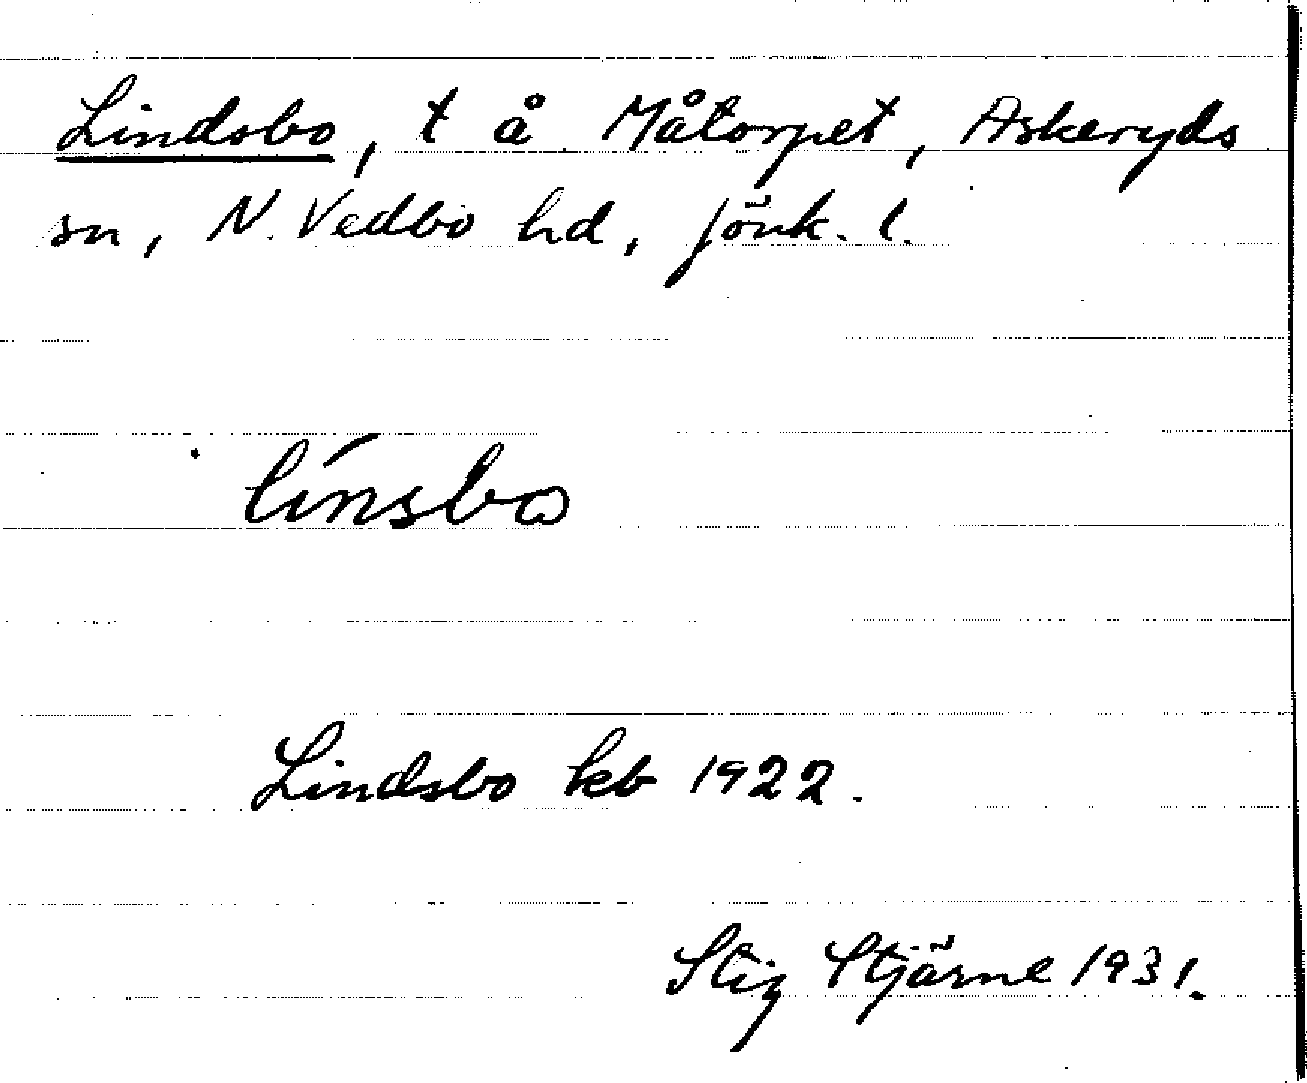 Lindsbo, t å Måtorpet, Askeryds
sn, N. Vedbo hd, Jönk. l.
línsbω
Lindsbo kb 1922.
Stig Stjärne 1931.